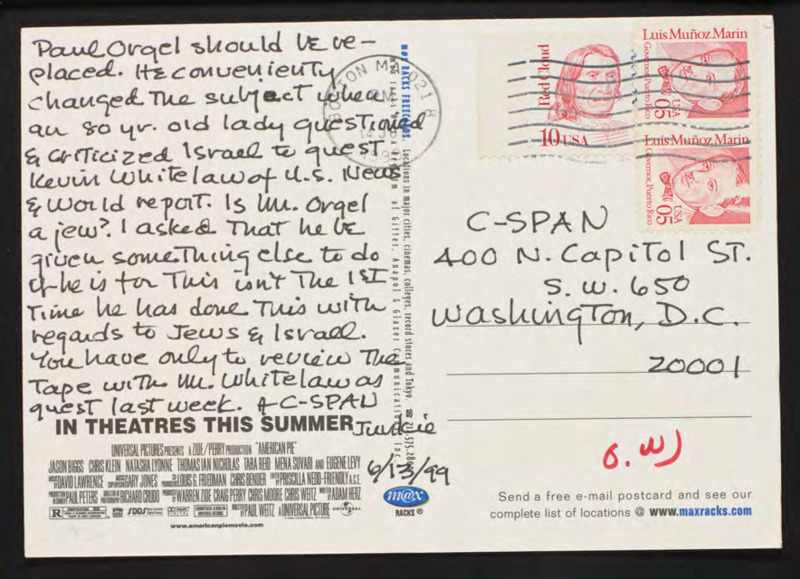 Paul Orgel should be re-
placed. He conveniently
changed the subject when
an 80 yr. old lady questioned
& criticized Israel to guest
Kevin Whitelaw of U.S. News
& World report. Is Mr. Orgel
a jew? I asked that he be
given something else to do
if he is for this isn't the 1st
time he has done this with
regards to Jews & Israel.
You have only to review the
tape with Mr. Whitelaw as
guest last week. A C-SPAN
Junkie
6/13/99
IN THEATRES THIS SUMMER
UNIVERSAL PICTURES PRESENTS A ZIDE/PERRY PRODUCTION "AMERICAN PIE"
JASON BIGGS CHRIS KLEIN NATASHA LYONNE THOMAS IAN NICHOLAS TARA REID MENA SUVARI AND EUGENE LEVY
DAVID LAWRENCE GARY JONES LOUIS G. FRIEDMAN CHRIS BENDER PRISCILLA NEDD-FRIENDLY A.C.E.
PAUL PETERS RICHARD CRUDO WARREN ZIDE CRAIG PERRY CHRIS MOORE CHRIS WEITZ ADAM HERZ
PAUL WEITZ A UNIVERSAL PICTURE
R RESTRICTED
UNIVERSAL
www.americanpiemovie.com
max RACKS FREECARDS Locations in major cities, cinemas, colleges, record stores and Tokyo.
BOSTON MA 021
PM
Red Cloud
10 USA
Luis Muñoz Marin
Governor, Puerto Rico
USA
05
Luis Muñoz Marin
Governor, Puerto Rico
USA
05
C-SPAN
400 N. Capitol ST.
S.W. 650
Washington, D.C.
20001
m@x
RACKS ®
Send a free e-mail postcard and see our
complete list of locations @ www.maxracks.com